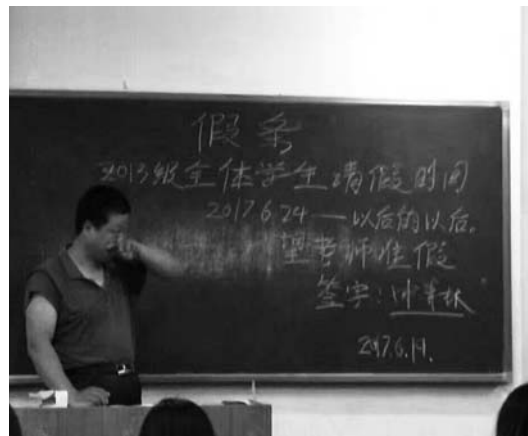 假条
2013级全体学生请假时间
2017 6.24——以后的以后。
望老师准假
签字:
2017.6.19.